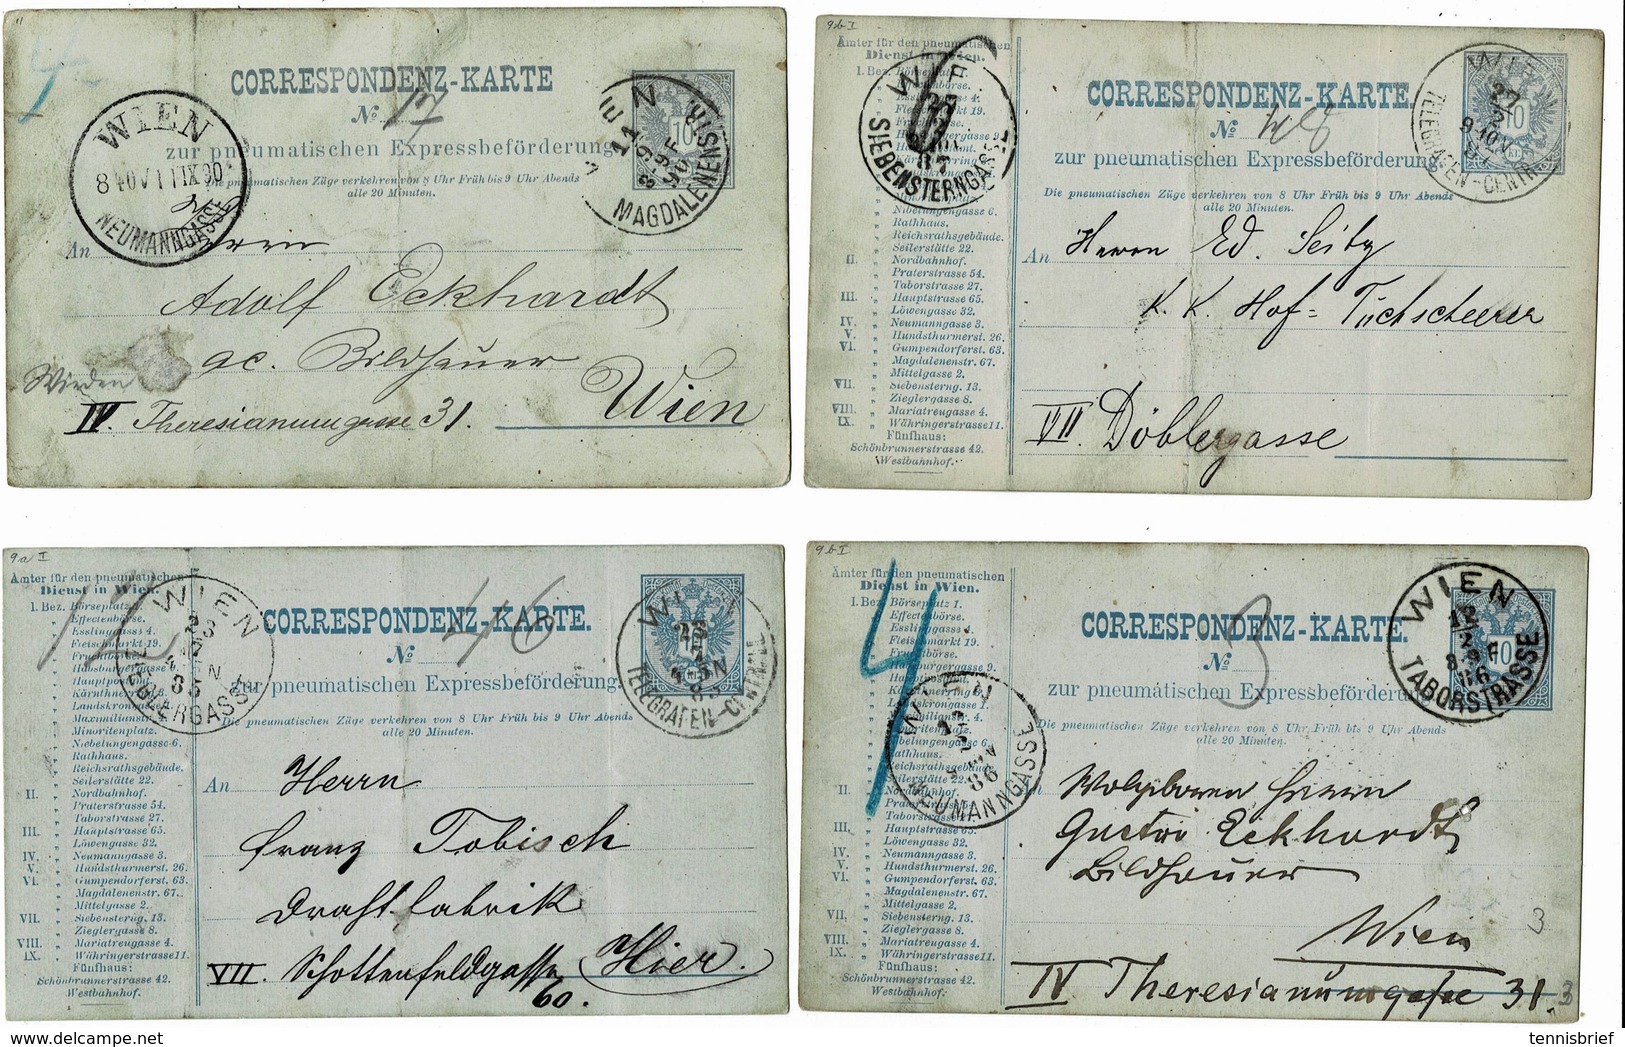 CORRESPONDENZ-KARTE
No 17
zur pneumatischen Expressbeförderung
Die pneumatischen Züge verkehren von 8 Uhr Früh bis 9 Uhr Abends
alle 20 Minuten.
WIEN
8 40V 1 11 IX 90
NEUMANNGASSE
WIEN
MAGDALENENSTR.
10
An Herrn
Adolf Eckhardt
ac. Bildhauer
Wieden Wien
IV. Theresianumgasse 31.
9b I
Ämter für den pneumatischen
Dienst in Wien.
I. Bez. Börseplatz 1.
Rathhaus.
Reichsrathsgebäude.
Seilerstätte 22.
II. Nordbahnhof.
Praterstrasse 54.
Taborstrasse 27.
III. Hauptstrasse 65.
Löwengasse 32.
IV. Neumanngasse 3.
V. Hundsthurmerst. 26.
VI. Gumpendorferst. 63.
Magdalenenstr. 67.
Mittelgasse 2.
VII. Siebensterng. 13.
Zieglergasse 8.
VIII. Mariatreugasse 4.
IX. Währingerstrasse 11.
Fünfhaus:
Schönbrunnerstrasse 42.
Westbahnhof.
SIEBENSTERNGASSE
CORRESPONDENZ-KARTE.
No 48
zur pneumatischen Expressbeförderung.
Die pneumatischen Züge verkehren von 8 Uhr Früh bis 9 Uhr Abends
alle 20 Minuten.
WIEN
TELEGRAFEN-CENTRALE
10
An Herrn Ed. Seitz
K. K. Hof= Tuchscheerer
VII. Döblergasse
9a I
Ämter für den pneumatischen
Dienst in Wien.
I. Bez. Börseplatz 1.
Effectenbörse.
Esslinggasse 4.
Fleischmarkt 19.
Fruchtbörse
Habsburgergasse 9.
Hauptpostamt.
Kärnthnerring
Landskrongasse 1.
Maximilianstr. 4.
Minoritenplatz.
Nibelungengasse 6.
Rathhaus.
Reichsrathsgebäude.
Seilerstätte 22.
II. Nordbahnhof.
Praterstrasse 54.
Taborstrasse 27.
III. Hauptstrasse 65.
Löwengasse 32.
IV. Neumanngasse 3.
V. Hundsthurmerst. 26.
VI. Gumpendorferst. 63.
Magdalenenstr. 67.
Mittelgasse 2.
VII. Siebensterng. 13.
Zieglergasse 8.
VIII. Mariatreugasse 4.
IX. Währingerstrasse 11.
Fünfhaus:
Schönbrunnerstrasse 42.
Westbahnhof.
WIEN
ZIEGLERGASSE
CORRESPONDENZ-KARTE.
No 46
zur pneumatischen Expressbeförderung.
Die pneumatischen Züge verkehren von 8 Uhr Früh bis 9 Uhr Abends
alle 20 Minuten.
TELEGRAFEN-CENTRALE
An Herrn
Franz Tobisch
Drahtfabrik
VII. Schottenfeldgasse Hier.
60.
9b I
Ämter für den pneumatischen
Dienst in Wien.
I. Bez. Börseplatz 1.
Effectenbörse.
Esslinggasse 4.
Fleischmarkt 19.
Nibelungengasse 6.
Rathhaus.
Reichsrathsgebäude.
Seilerstätte 22.
II. Nordbahnhof.
Praterstrasse 54.
Taborstrasse 27.
III. Hauptstrasse 65.
Löwengasse 32.
IV. Neumanngasse 3.
V. Hundsthurmerst. 26.
VI. Gumpendorferst. 63.
Magdalenenstr. 67.
Mittelgasse 2.
VII. Siebensterng. 13.
Zieglergasse 8.
VIII. Mariatreugasse 4.
IX. Währingerstrasse 11.
Fünfhaus:
Schönbrunnerstrasse 42.
Westbahnhof.
4
WIEN
NEUMANNGASSE
CORRESPONDENZ-KARTE.
No 3
zur pneumatischen Expressbeförderung.
Die pneumatischen Züge verkehren von 8 Uhr Früh bis 9 Uhr Abends
alle 20 Minuten.
WIEN
12
2
8-9 F
86
TABORSTRASSE
10
Gustav Eckhardt
Bildhauer
Wien
IV Theresianumgasse 31.
3
3
tennisbrief